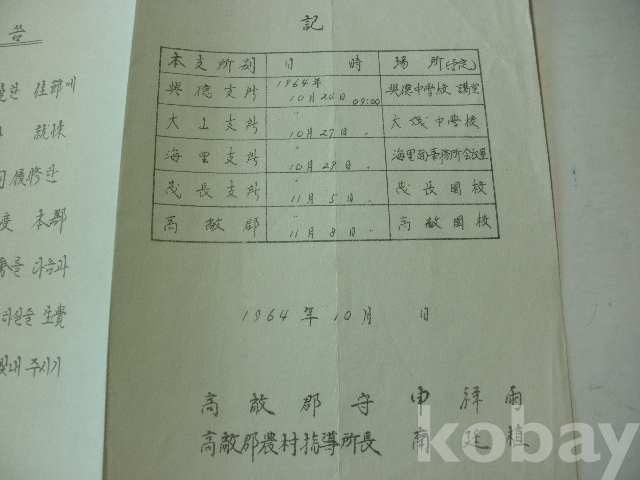 告
한 佳節에
就捧
履修한
度 本郡
을 다음과
타실줄 生覺
빛내 주시기
記
本支所別 日 時 場所(予定)
興德支所 1964年 10月 24日 09:00 興德中學校 講堂
大山支所 〃 10月 27日 〃 大成中學校
海里支所 〃 10月 29日 〃 海里面事務所會議室
茂長支所 〃 11月 5日 〃 茂長國校
高敞郡 〃 11月 8日 〃 高敞國校
1964年 10月 日
高敞郡守 申 雨
高敞郡農村指導所長 南廷植
kobay